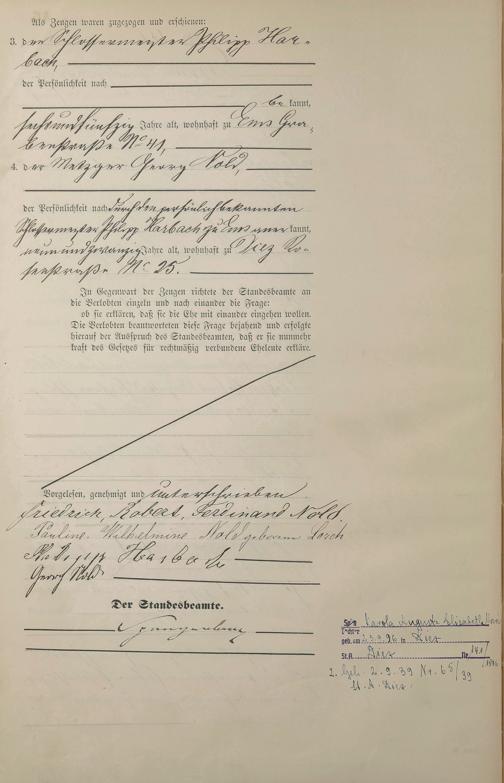 Als Zeugen waren zugezogen und erschienen:
3. der Schlossermeister Philipp Har-
bach,
der Persönlichkeit nach
be kannt,
sechsundfünfzig Jahre alt, wohnhaft zu Ems Gra-
benstraße No 41,
4. der Metzger Georg Nold,
der Persönlichkeit nach durch den persönlich bekannten
Schlossermeister Philipp Harbach zu Ems aner kannt,
neunundzwanzig Jahre alt, wohnhaft zu Diez Ro-
senstraße No 25.
In Gegenwart der Zeugen richtete der Standesbeamte an
die Verlobten einzeln und nach einander die Frage:
ob sie erklären, daß sie die Ehe mit einander eingehen wollen.
Die Verlobten beantworteten diese Frage bejahend und erfolgte
hierauf der Ausspruch des Standesbeamten, daß er sie nunmehr
kraft des Gesetzes für rechtmäßig verbundene Eheleute erkläre.
Vorgelesen, genehmigt und unterschrieben
Friedrich, Robert, Ferdinand Nold
Pauline Wilhelmine Nold geborene Lorch
Philipp Harbach
Georg Nold
Der Standesbeamte.
Spangenberg
Carola Auguste Elisabeth
geb. am 23.9.96 in Diez
St.A. Diez Nr. 141/
1. Geh. 2.9.39 Nr. 65/39
St. A. Diez